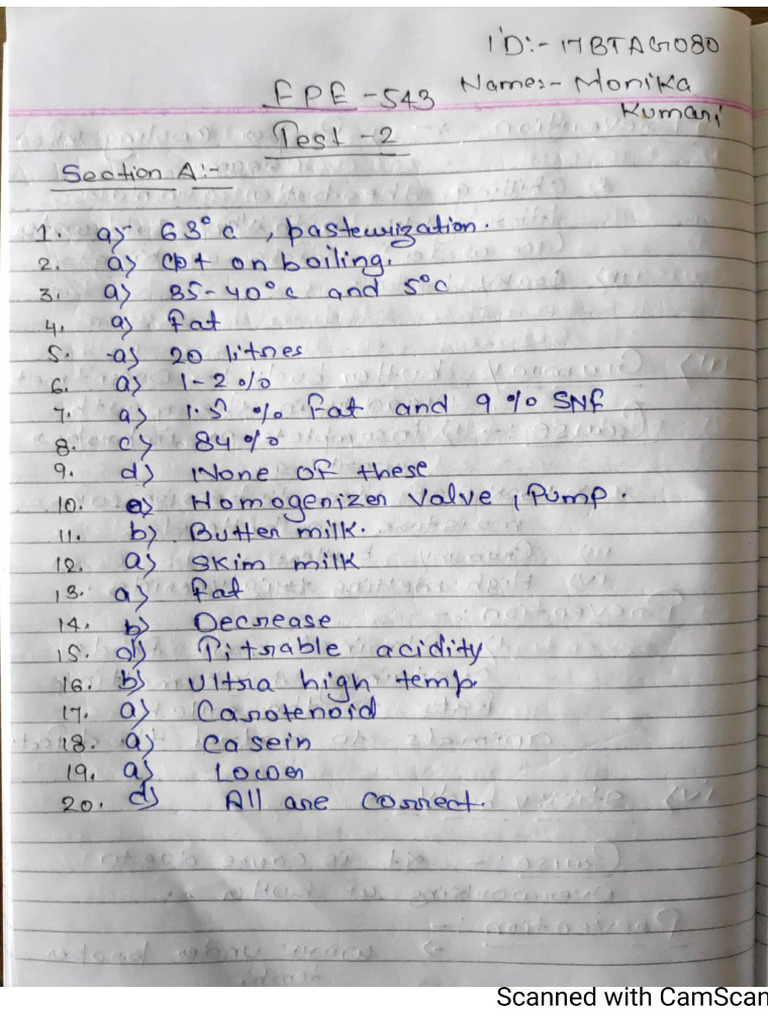 ID:- 17BTAG080
FPE-543 Name:- Monika
Kumari
Test-2
Section A:-
1. a) 63°c, pasteurization.
2. a) cot on boiling.
3. a) 35-40°c and 5°c
4. a) fat
5. a) 20 litres
6. a) 1-2%
7. a) 1.5% fat and 9% SNF
8. c) 84%
9. d) None of these
10. a) Homogenizer valve, Pump.
11. b) Butter milk.
12. a) Skim milk
13. a) fat
14. b) Decrease
15. d) Titrable acidity
16. b) Ultra high temp.
17. a) Carotenoid
18. a) Casein
19. a) Lower
20. d) All are correct.
Scanned with CamScan